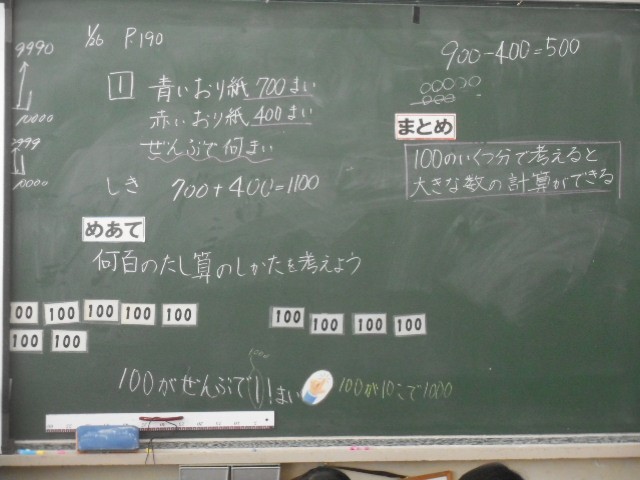 9990
10000
9999
10000
1/26 P.190
1 青いおり紙 700まい
赤いおり紙 400まい
ぜんぶで何まい
しき 700+400=1100
めあて
何百のたし算のしかたを考えよう
100 100 100 100 100
100 100
100 100 100 100
100がぜんぶで11まい
100が10こで1000
900-400=500
まとめ
100のいくつ分で考えると
大きな数の計算ができる